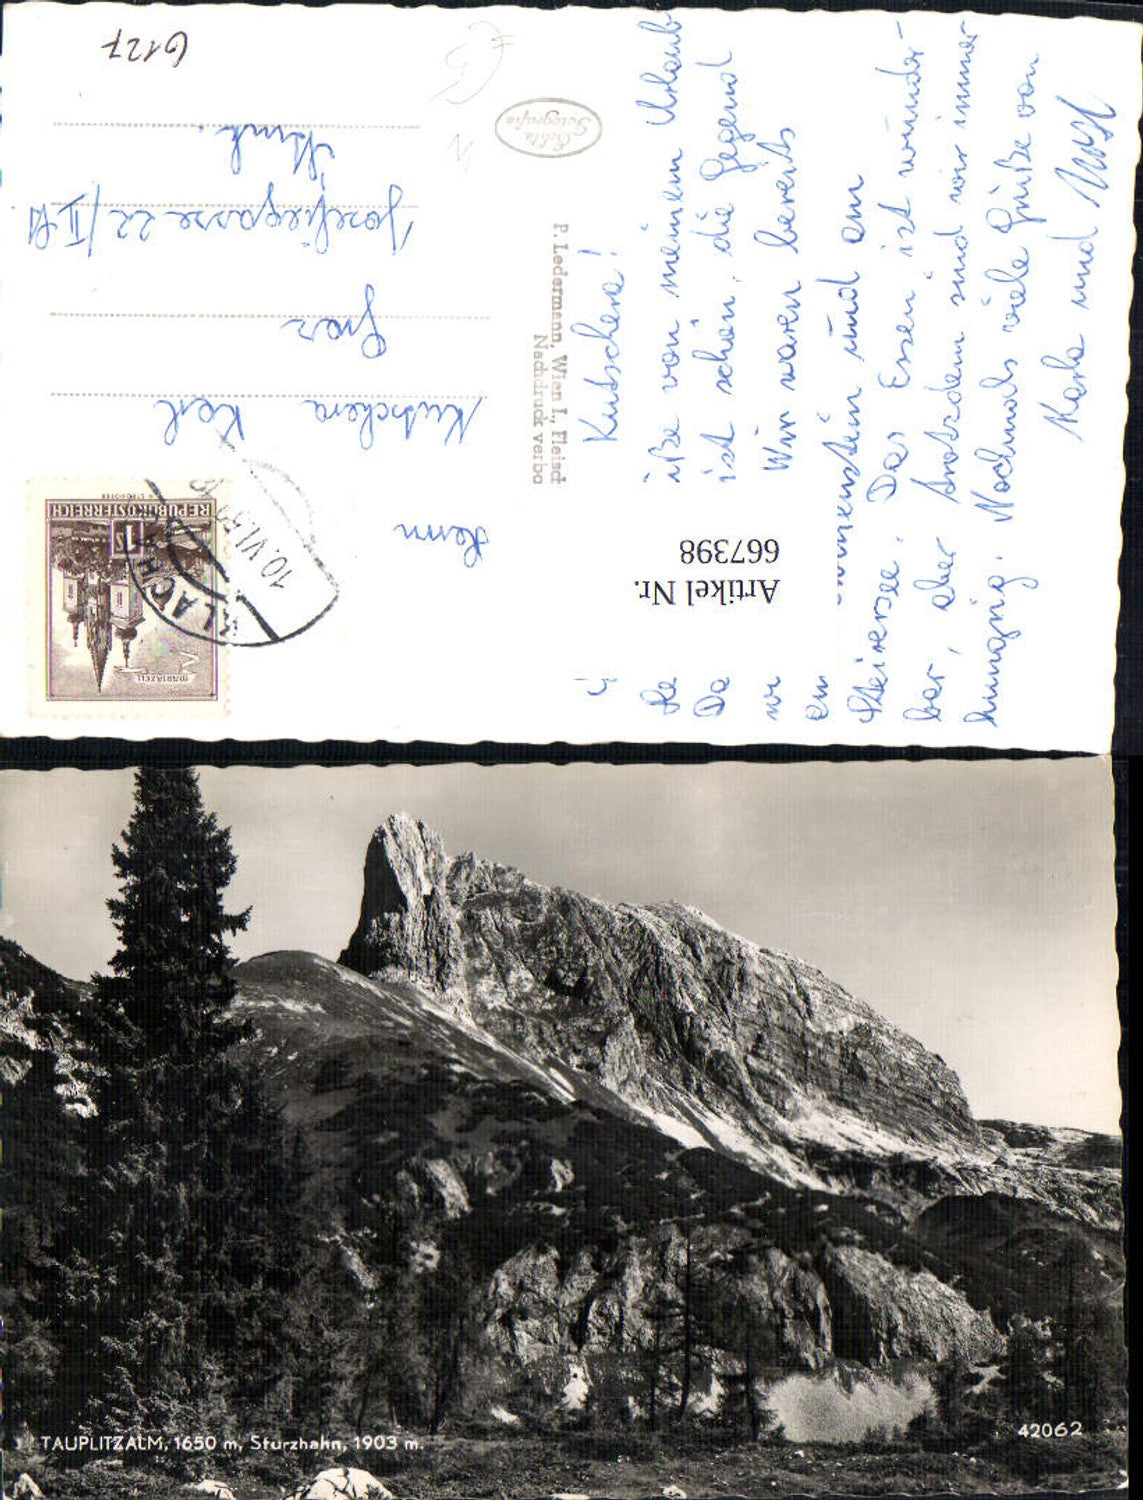 6127
Echte
Fotografie
P. Ledermann, Wien I., Fleisch
Nachdruck verbo
REPUBLIK ÖSTERREICH
1 S
MARIAZELL
10.VI.5
Herrn
Kutschera Karl
Graz
Josefigasse 22/II
Artikel Nr.
667398
Kutschera!
üße von meinem Urlaub
Da ist schön, die Gegend
Wir waren bereits
und am
Steirersee. Das Essen ist wunder-
bar, aber trotzdem sind wir immer
hungrig. Nochmals viele Grüße von
und
TAUPLITZALM, 1650 m, Sturzhahn, 1903 m.
42062